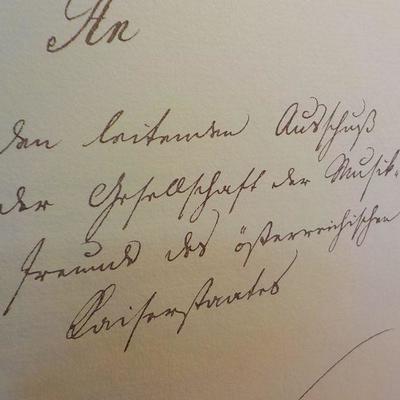 An
den leitenden Ausschuß
der Gesellschaft der Musik-
freunde des österreichischen
Kaiserstaates